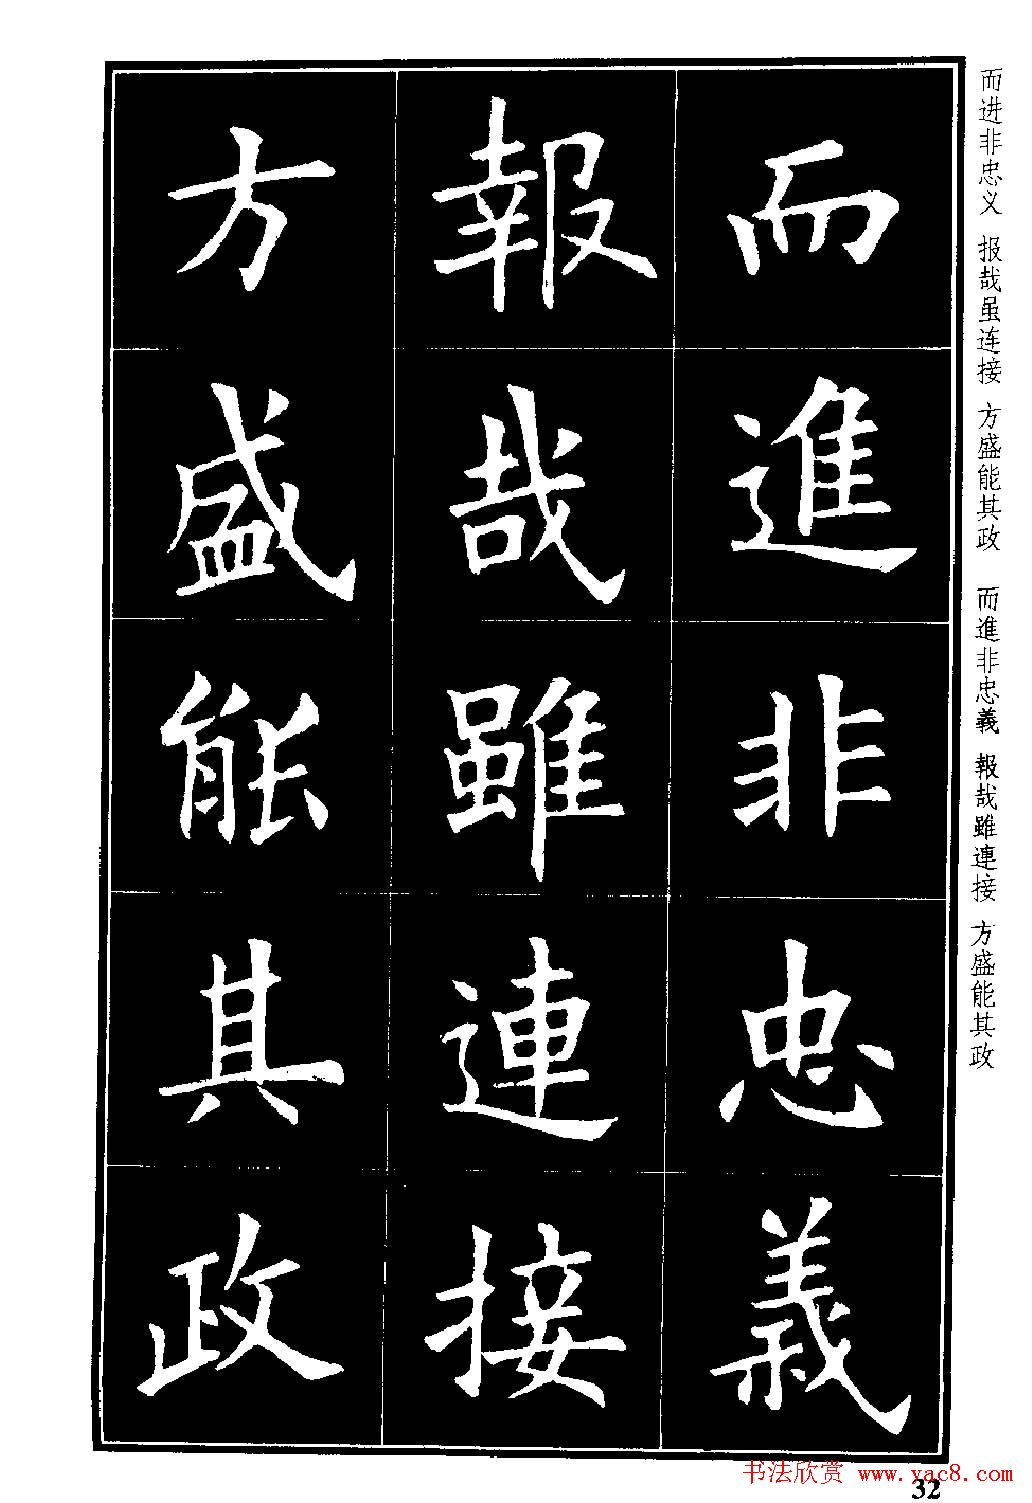 而進非忠義
報哉雖連接
方盛能其政
而进非忠义 报哉虽连接 方盛能其政 而進非忠義 報哉雖連接 方盛能其政
书法欣赏 www.yac8.com
32